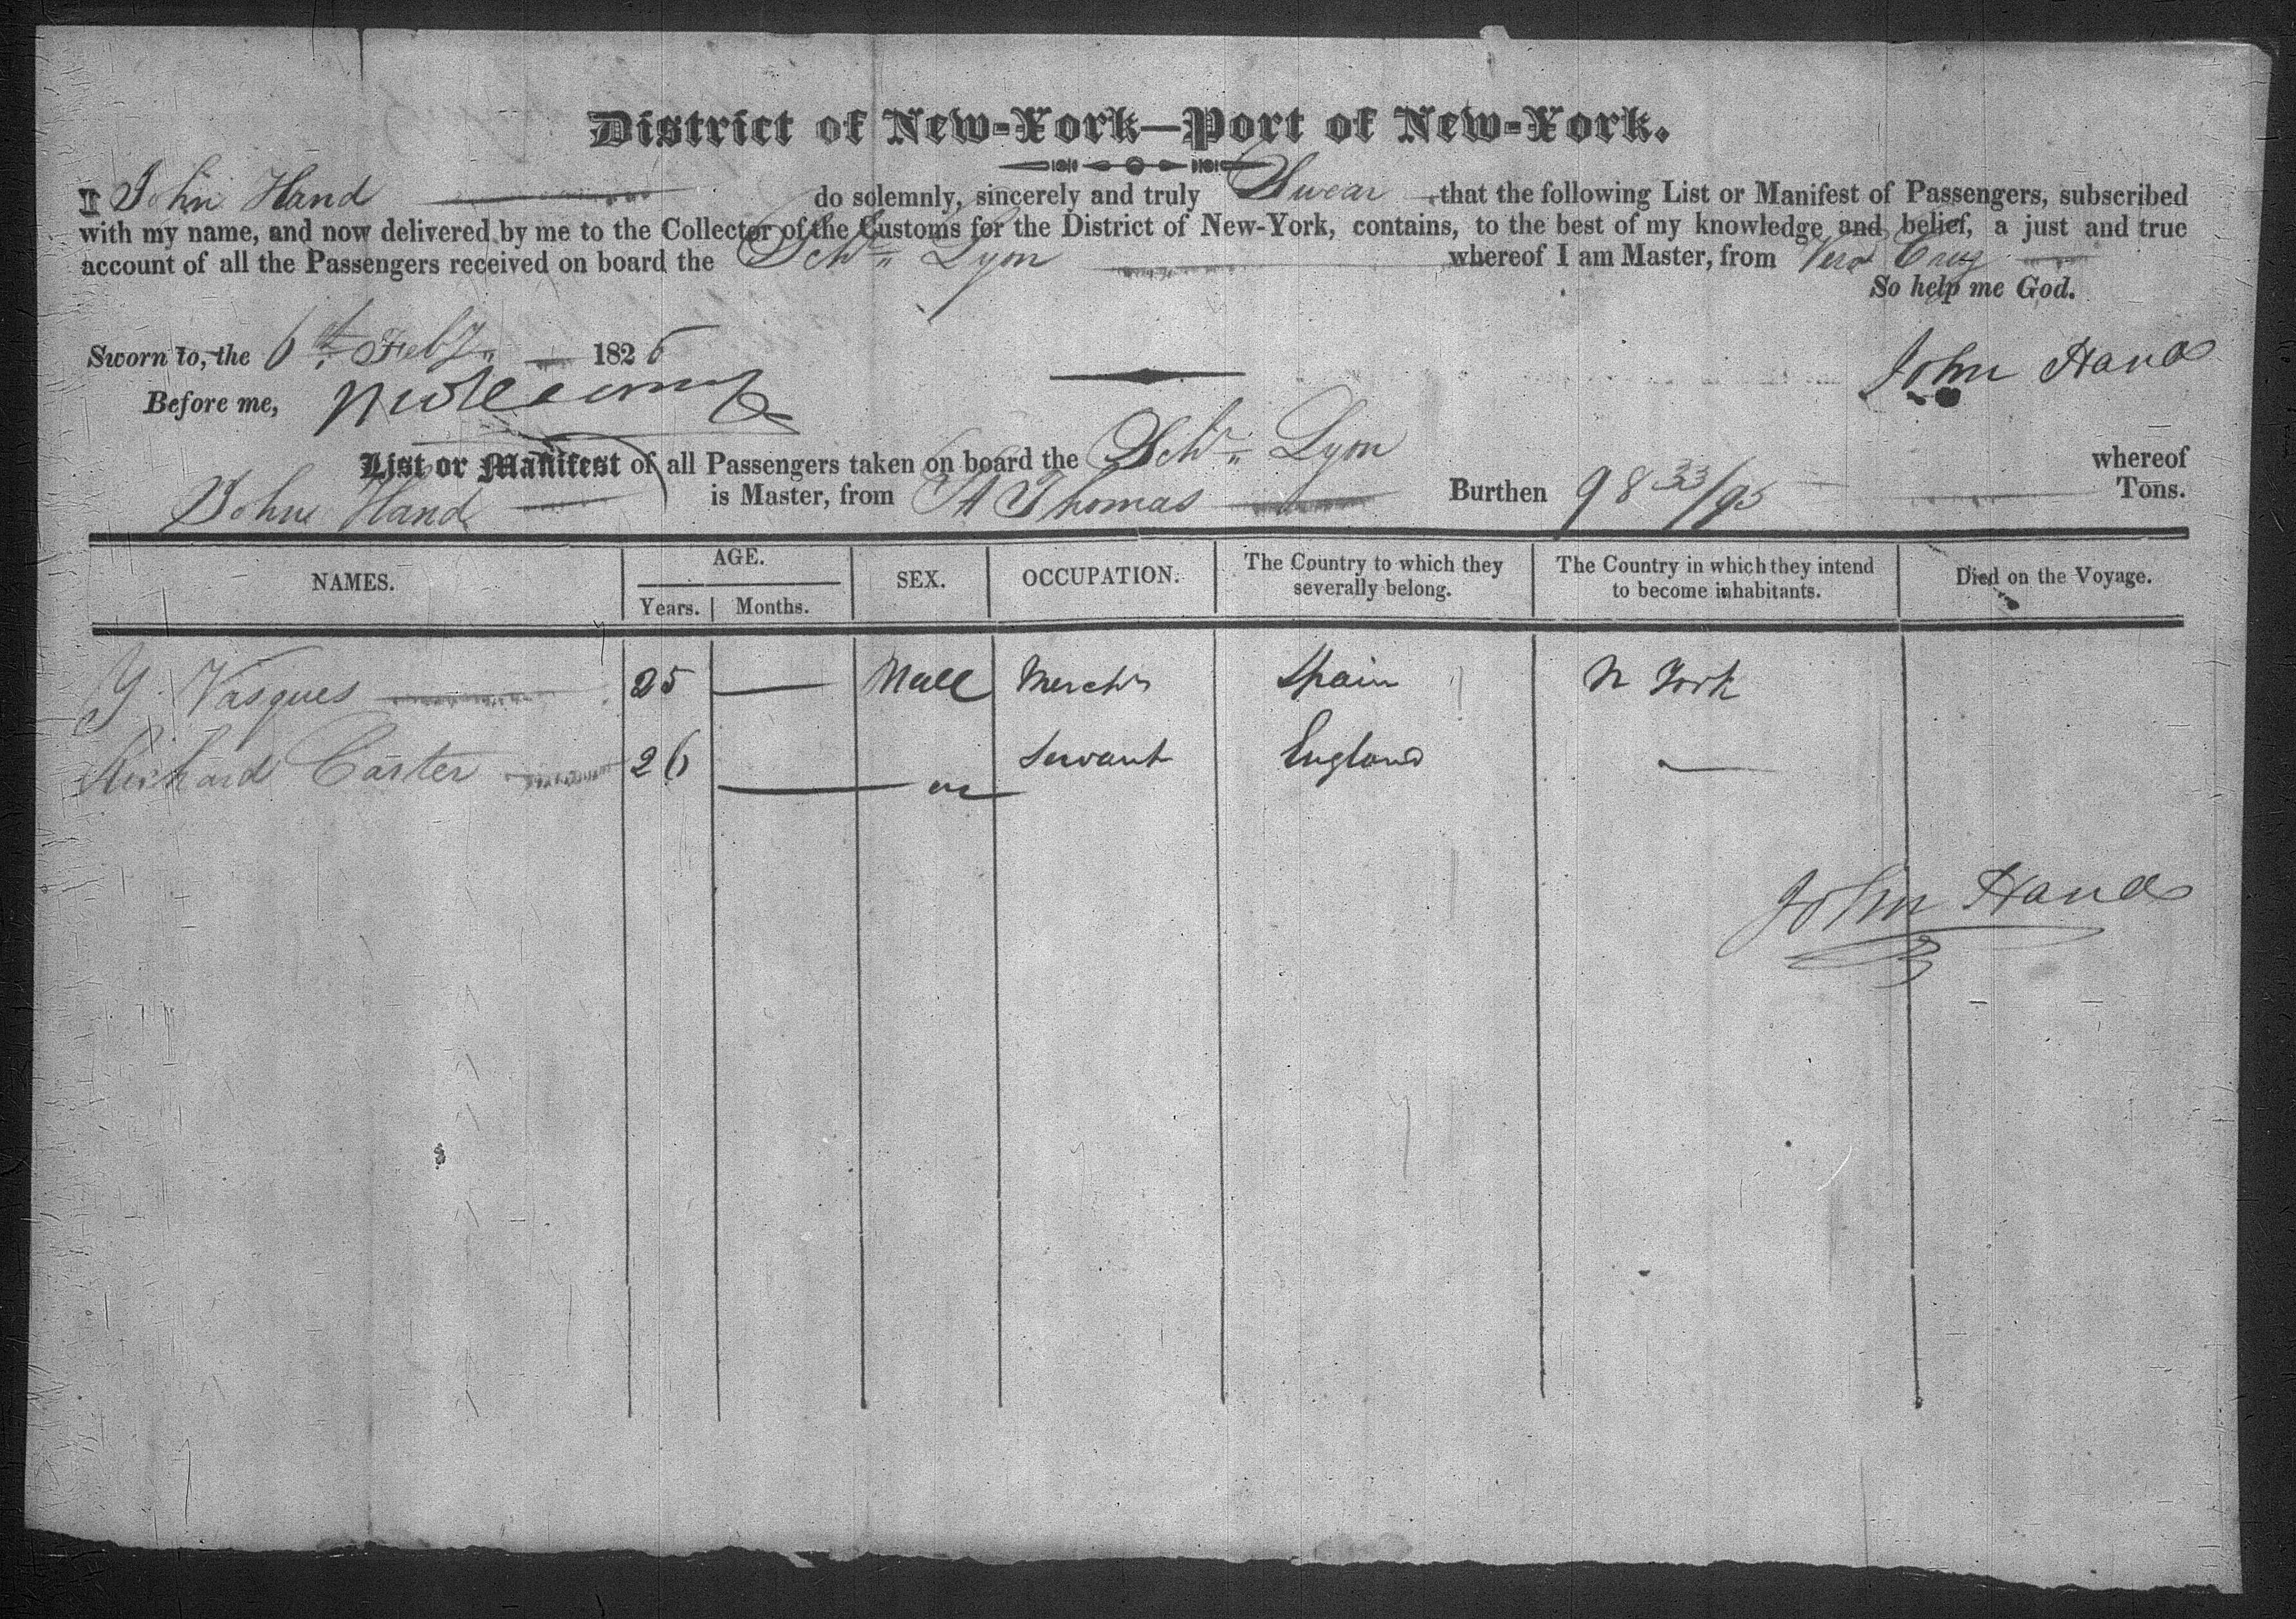 District of New-York—Port of New-York.
I John Hand do solemnly, sincerely and truly Swear that the following List or Manifest of Passengers, subscribed
with my name, and now delivered by me to the Collector of the Customs for the District of New-York, contains, to the best of my knowledge and belief, a just and true
account of all the Passengers received on board the Schr Lyon whereof I am Master, from Vera Cruz
So help me God.
Sworn to, the 6th Feby 1826
John Hand
Before me,
List or Manifest of all Passengers taken on board the Schr Lyon whereof
John Hand is Master, from St Thomas Burthen 98 33/95 Tons.
NAMES. AGE. Years. Months. SEX. OCCUPATION. The Country to which they severally belong. The Country in which they intend to become inhabitants. Died on the Voyage.
Y. Vasques 25 — Male Mercht Spain N York
Richard Carter 26 — Servant England —
John Hand